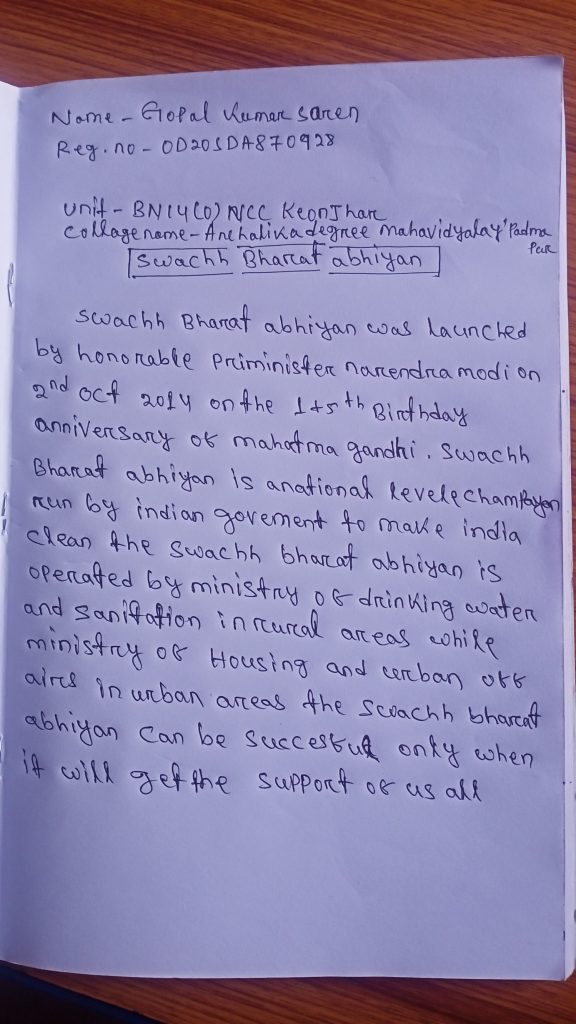 Name - Gopal Kumar saren
Reg. no - OD20SDA870928
unit - BN14(O) NCC KeonJhar
collage name - Anchalika degree mahavidyalay' Padma
Pur
Swachh Bharat abhiyan
swachh Bharat abhiyan was launched
by honorable Priminister narendra modi on
2nd oct 2014 on the 145th Birthday
anniversary of mahatma gandhi. swachh
Bharat abhiyan is anational levele champayen
run by indian goverment to make india
clean the swachh bharat abhiyan is
operated by ministry of drinking water
and sanitation in rural areas while
ministry of Housing and urban off
airs in urban areas the swachh bharat
abhiyan can be succesful only when
it will get the support of us all